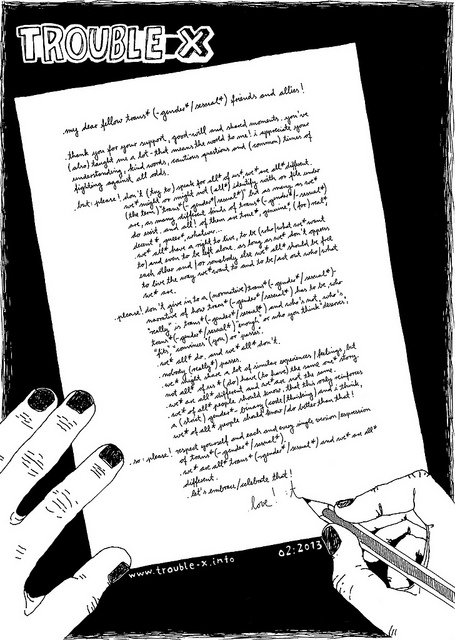 TROUBLE X
.my dear fellow trans* (-gender*/sexual*) friends and allies!
.thank you for your support, good-will and shared moments. you've
(also) taught me a lot - that means the world to me! i appreciate your
understanding, kind words, cautious questions and (common) times of
fighting against all odds.
.but: please! don't (try to) speak for all* of us*, we* are all* different.
.we* might or might not (all*) identify with or file under
(the term) "trans* (-gender*/sexual*)" but as many as we*
are, as many different kinds of trans* (-gender*/-sexual*)
do exist. and all! of them are true*, genuine*, (for) real*
decent*, queer*, whatever...
.we* all* have a right to live, to be (who/what we* want
to) and even to be left alone. as long as we* don't oppress
each other and/or somebody else we* all* should be free
to live the way we* want to and to be/act out who/what
we* are.
.please! don't give in to a (normative) trans* (-gender*/sexual*)-
narrative of how trans* (-gender*/sexual*) has to be, who
"really" is trans* (-gender*/sexual*) and who's not, who's
trans* (-gender*/sexual*) "enough" or who you think "deserves",
"fits", "convinces" (you) or "passes".
.we* all* do, and we* all* don't.
.nobody (really*) passes.
.we* might share a lot of similar experiences/feelings, but
not all* of us* (do) have (to have) the same one* story.
.we* are all* different and we* are not the same.
.we* of all* people should know, that this only reinforces
a (strict) gender*-binary (code/thinking) and i think,
we* of all* people should know/do better than that!
.so: please! respect yourself and each and every single version/expression
of trans* (-gender*/sexual*)!
.we* are all* trans* (-gender*/sexual*) and we* are all*
different.
.let's embrace/celebrate that!
love!
www.trouble-x.info
02:2013